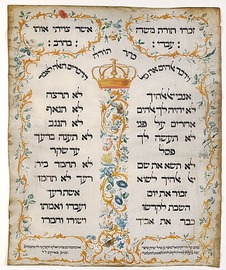 זכרו תורת משה
עבדי
אשר צויתי אותו
בחרב
וידבר אלהים את כל
הדברים האלה לאמר
אנכי אלהיך
לא יהיה לך
אחרים על פני
לא תעשה לך
פסל
לא תשא את שם
אלהיך לשוא
זכור את יום
השבת לקדשו
כבד את אביך
לא תרצח
לא תנאף
לא תגנב
לא תענה ברעך
עד שקר
לא תחמד בית
רעך לא תחמד
אשת רעך
ועבדו ואמתו
ושורו וחמרו